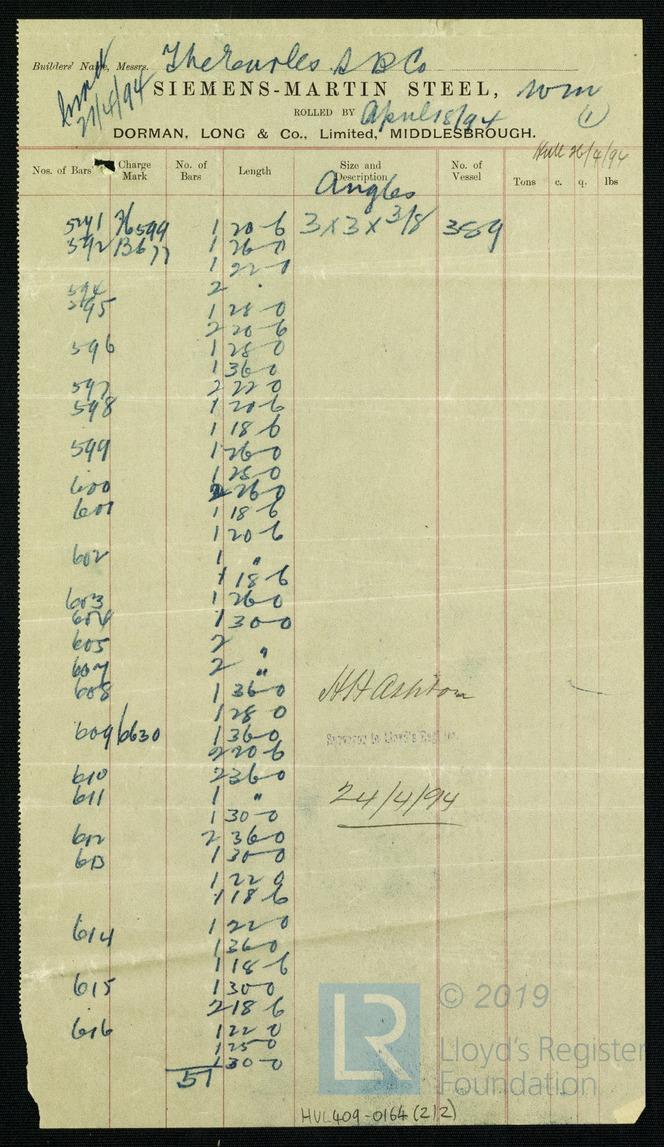 Builders' Name, Messrs. The Earles S B Co
21/4/94
SIEMENS-MARTIN STEEL,
ROLLED BY April 18/94 (1)
DORMAN, LONG & Co., Limited, MIDDLESBROUGH.
Hull 26/4/94
Nos. of Bars Charge Mark No. of Bars Length Size and Description No. of Vessel Tons c. q. lbs
Angles
1 20-6 3 x 3 x 3/8 389
592 1 26-0
1 22-0
594 2
595 1 28-0
2 20-6
596 1 28-0
1 36-0
597 2 22-0
598 1 20-6
1 18-6
599 1 26-0
1 28-0
600 2 26-0
601 1 18-6
1 20-6
602 1 "
1 18-6
603 1 26-0
604 1 30-0
605 2 "
607 2 "
608 1 36-0 H H Ashton
1 28-0
609 6630 1 36-0 Surveyor to Lloyd's Register.
2 20-6
610 2 36-0
611 1 " 24/4/94
1 30-0
612 2 36-0
613 1 30-0
1 22-0
1 18-6
614 1 22-0
1 36-0
1 18-6
615 1 30-0
2 18-6
616 1 22-0
1 25-0
1 30-0
51
LR © 2019
Lloyd's Register
Foundation
HUL409-0164 (2/2)